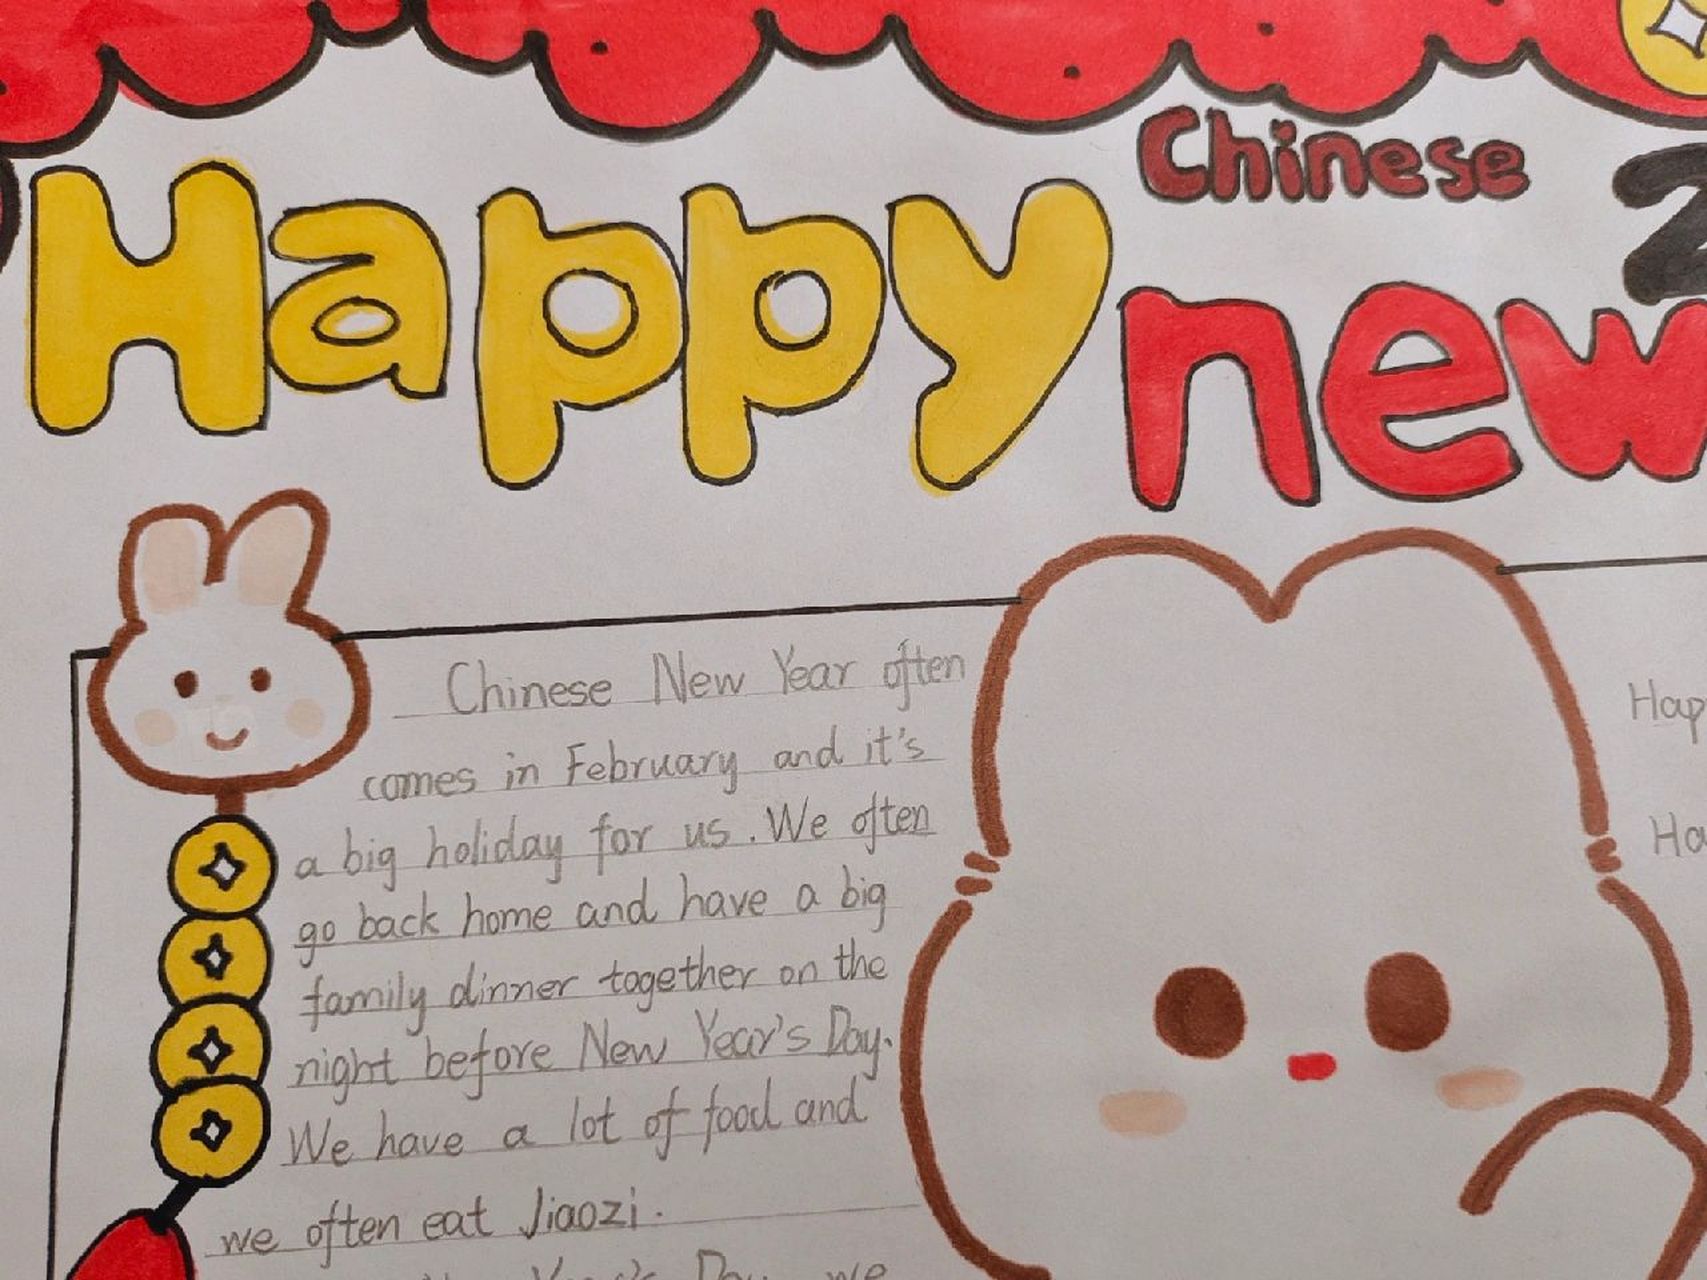 Happy Chinese new
Chinese New Year often
comes in February and it's
a big holiday for us. We often
go back home and have a big
family dinner together on the
night before New Year's Day.
We have a lot of food and
we often eat Jiaozi.
Year's Day we